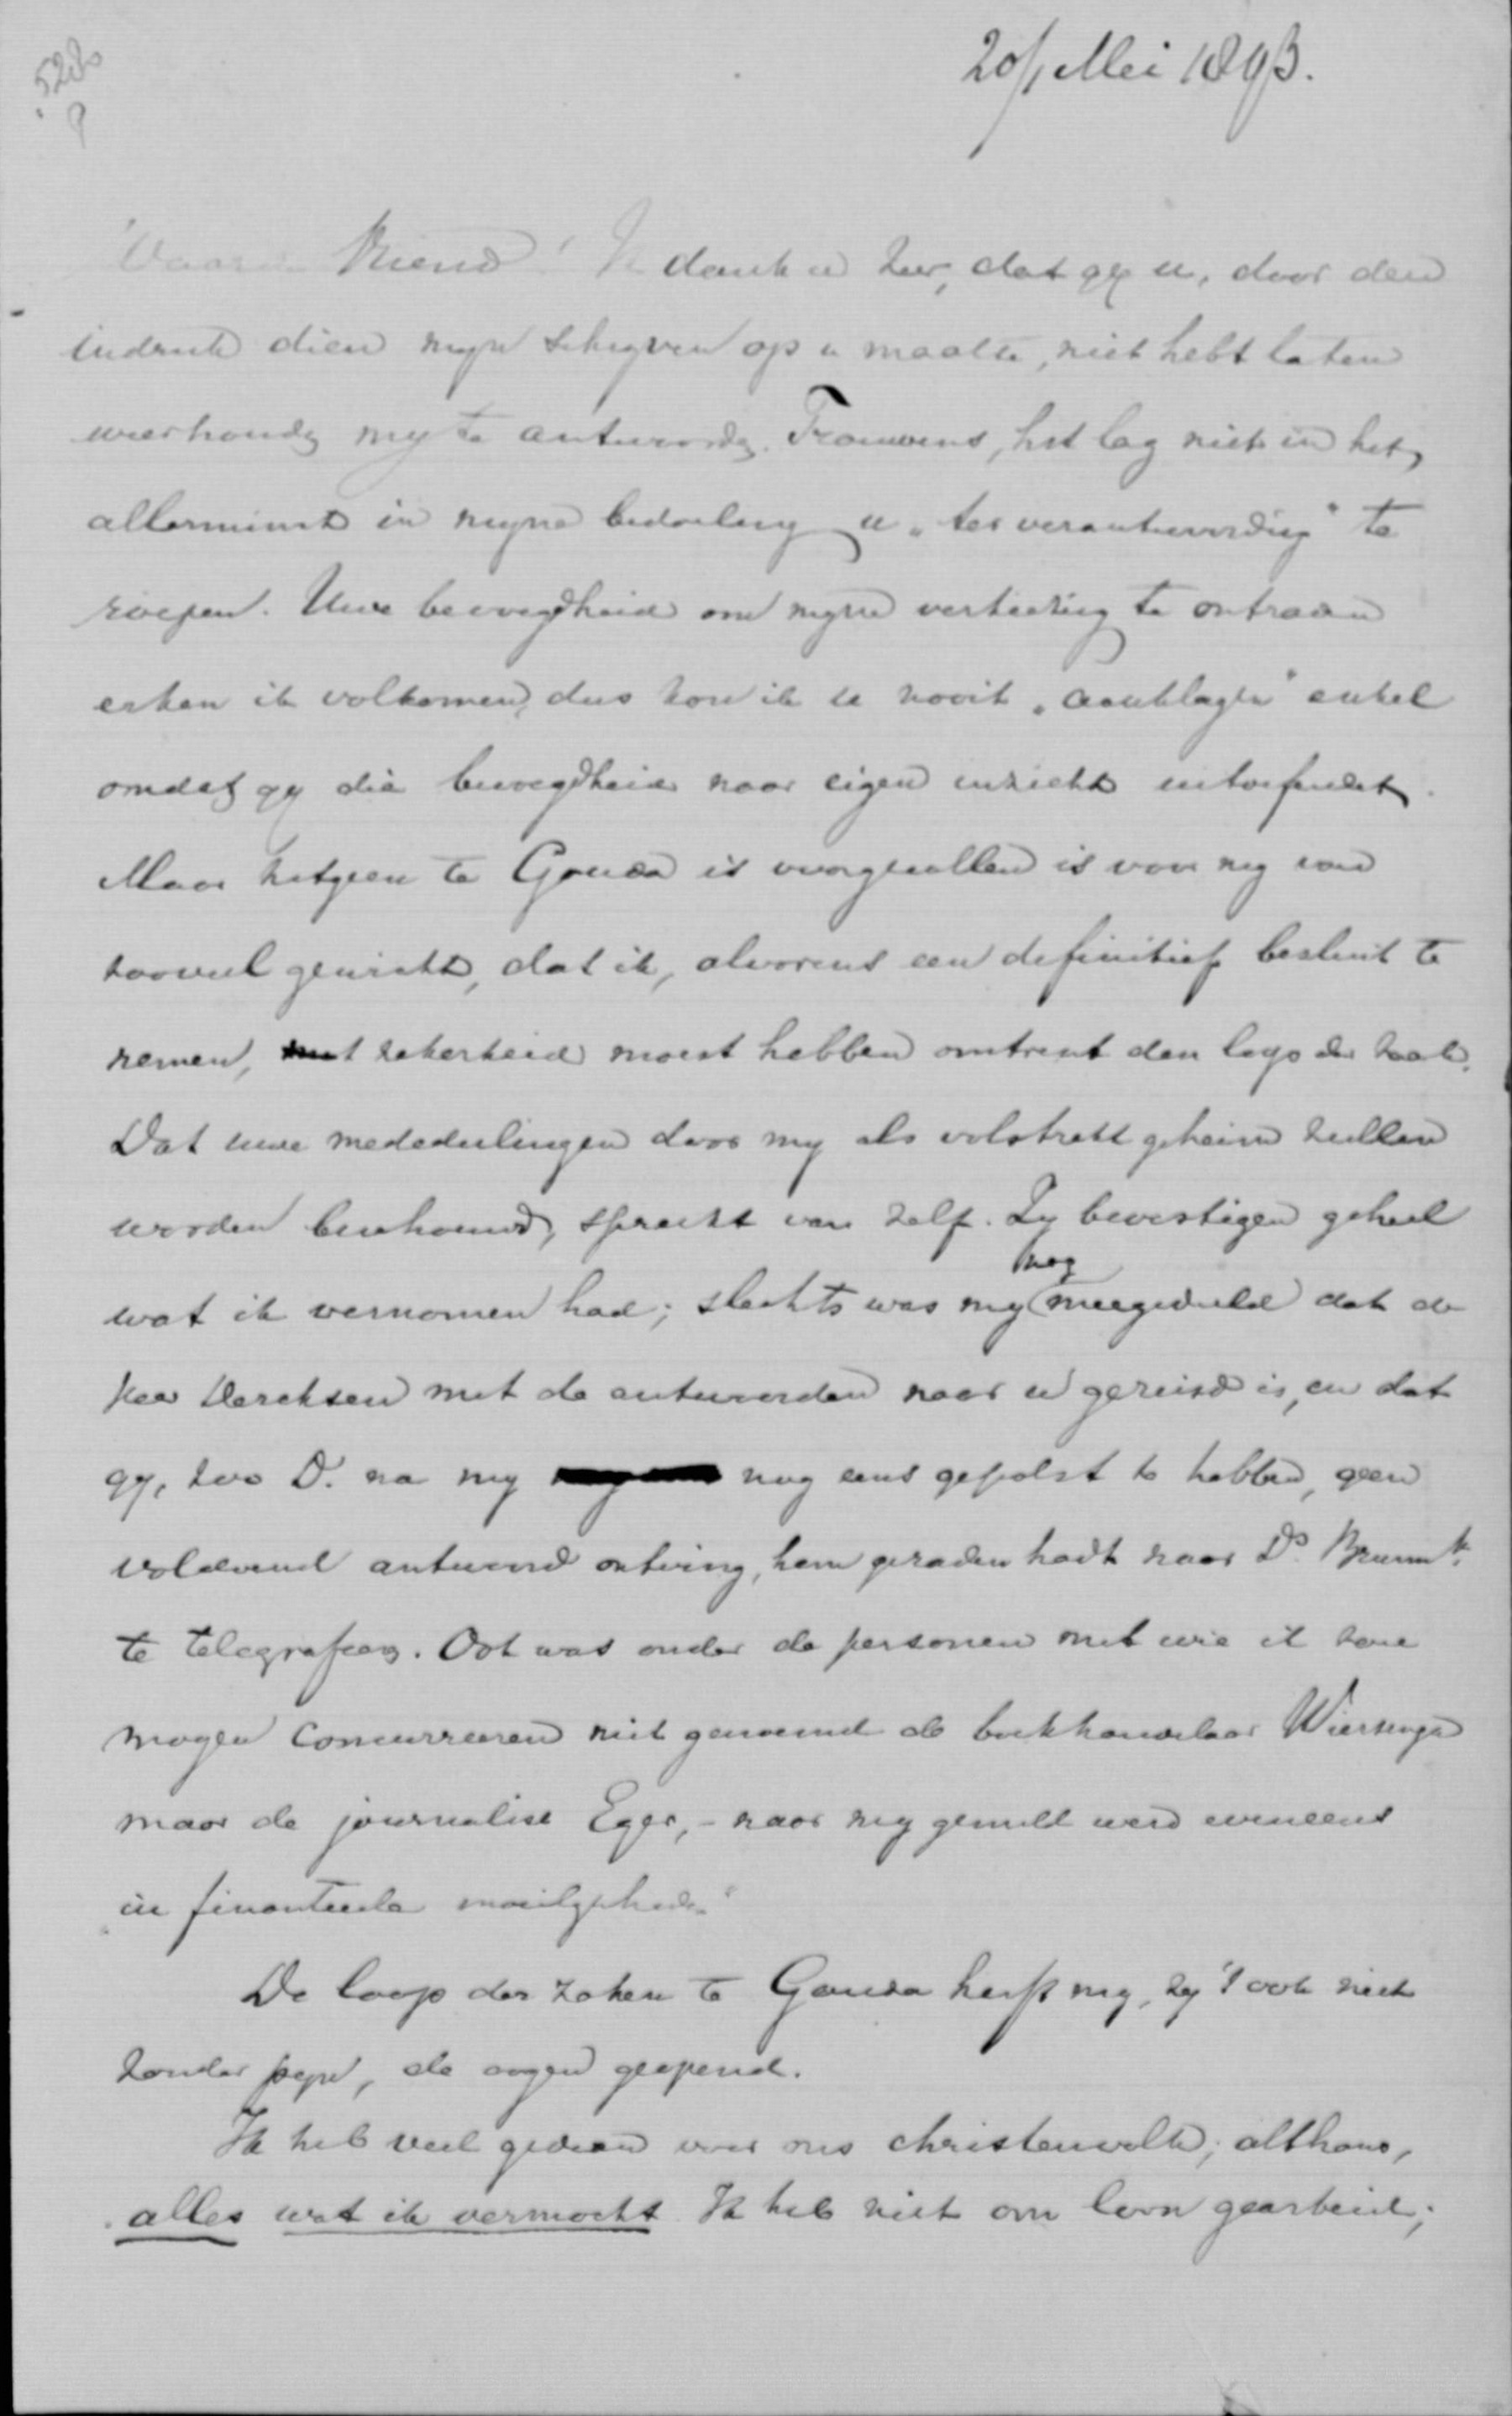 20/ Mei 1893.
Waarde Vriend! Ik dank u zeer, dat gij u, door den
indruk dien mijn schrijven op u maakte, niet hebt laten
weerhouden mij te antwoorden. Trouwens, het lag niet in het
allerminst in mijne bedoeling u „ter verantwoording" te
roepen. Uwe bevoegdheid om mijne verkiezing te ontraden
erken ik volkomen, dus kon ik u nooit „aanklagen" enkel
omdat gij die bevoegdheid naar eigen inzicht uitoefendet.
Maar hetgeen te Gouda is voorgevallen is voor mij van
zooveel gewicht, dat ik, alvorens een definitief besluit te
nemen, zekerheid moest hebben omtrent den loop der zaak.
Dat uwe mededeelingen door mij als volstrekt geheim zullen
worden beschouwd, spreekt van zelf. Zij bevestigen geheel
wat ik vernomen had; slechts was mij nog meegedeeld dat de
heer Dercksen met de antwoorden naar u gereisd is, en dat
gij, zoo D. na mij nog eens gepolst te hebben, geen
voldoend antwoord ontving, hem geraden hadt naar Ds. Brumm
te telegrafeeren. Ook was onder de personen met wie ik zou
mogen concurreeren niet genoemd de boekhandelaar Wiersinga
maar de journalist Eger, – naar mij gemeld werd eveneens
„in finantieele moeilijkheden"
De loop der zaken te Gouda heeft mij, zij 't ook niet
zonder pijn, de oogen geopend.
Ik heb veel gedaan voor ons christenvolk; althans,
alles wat ik vermocht Ik heb niet om loon gearbeid;